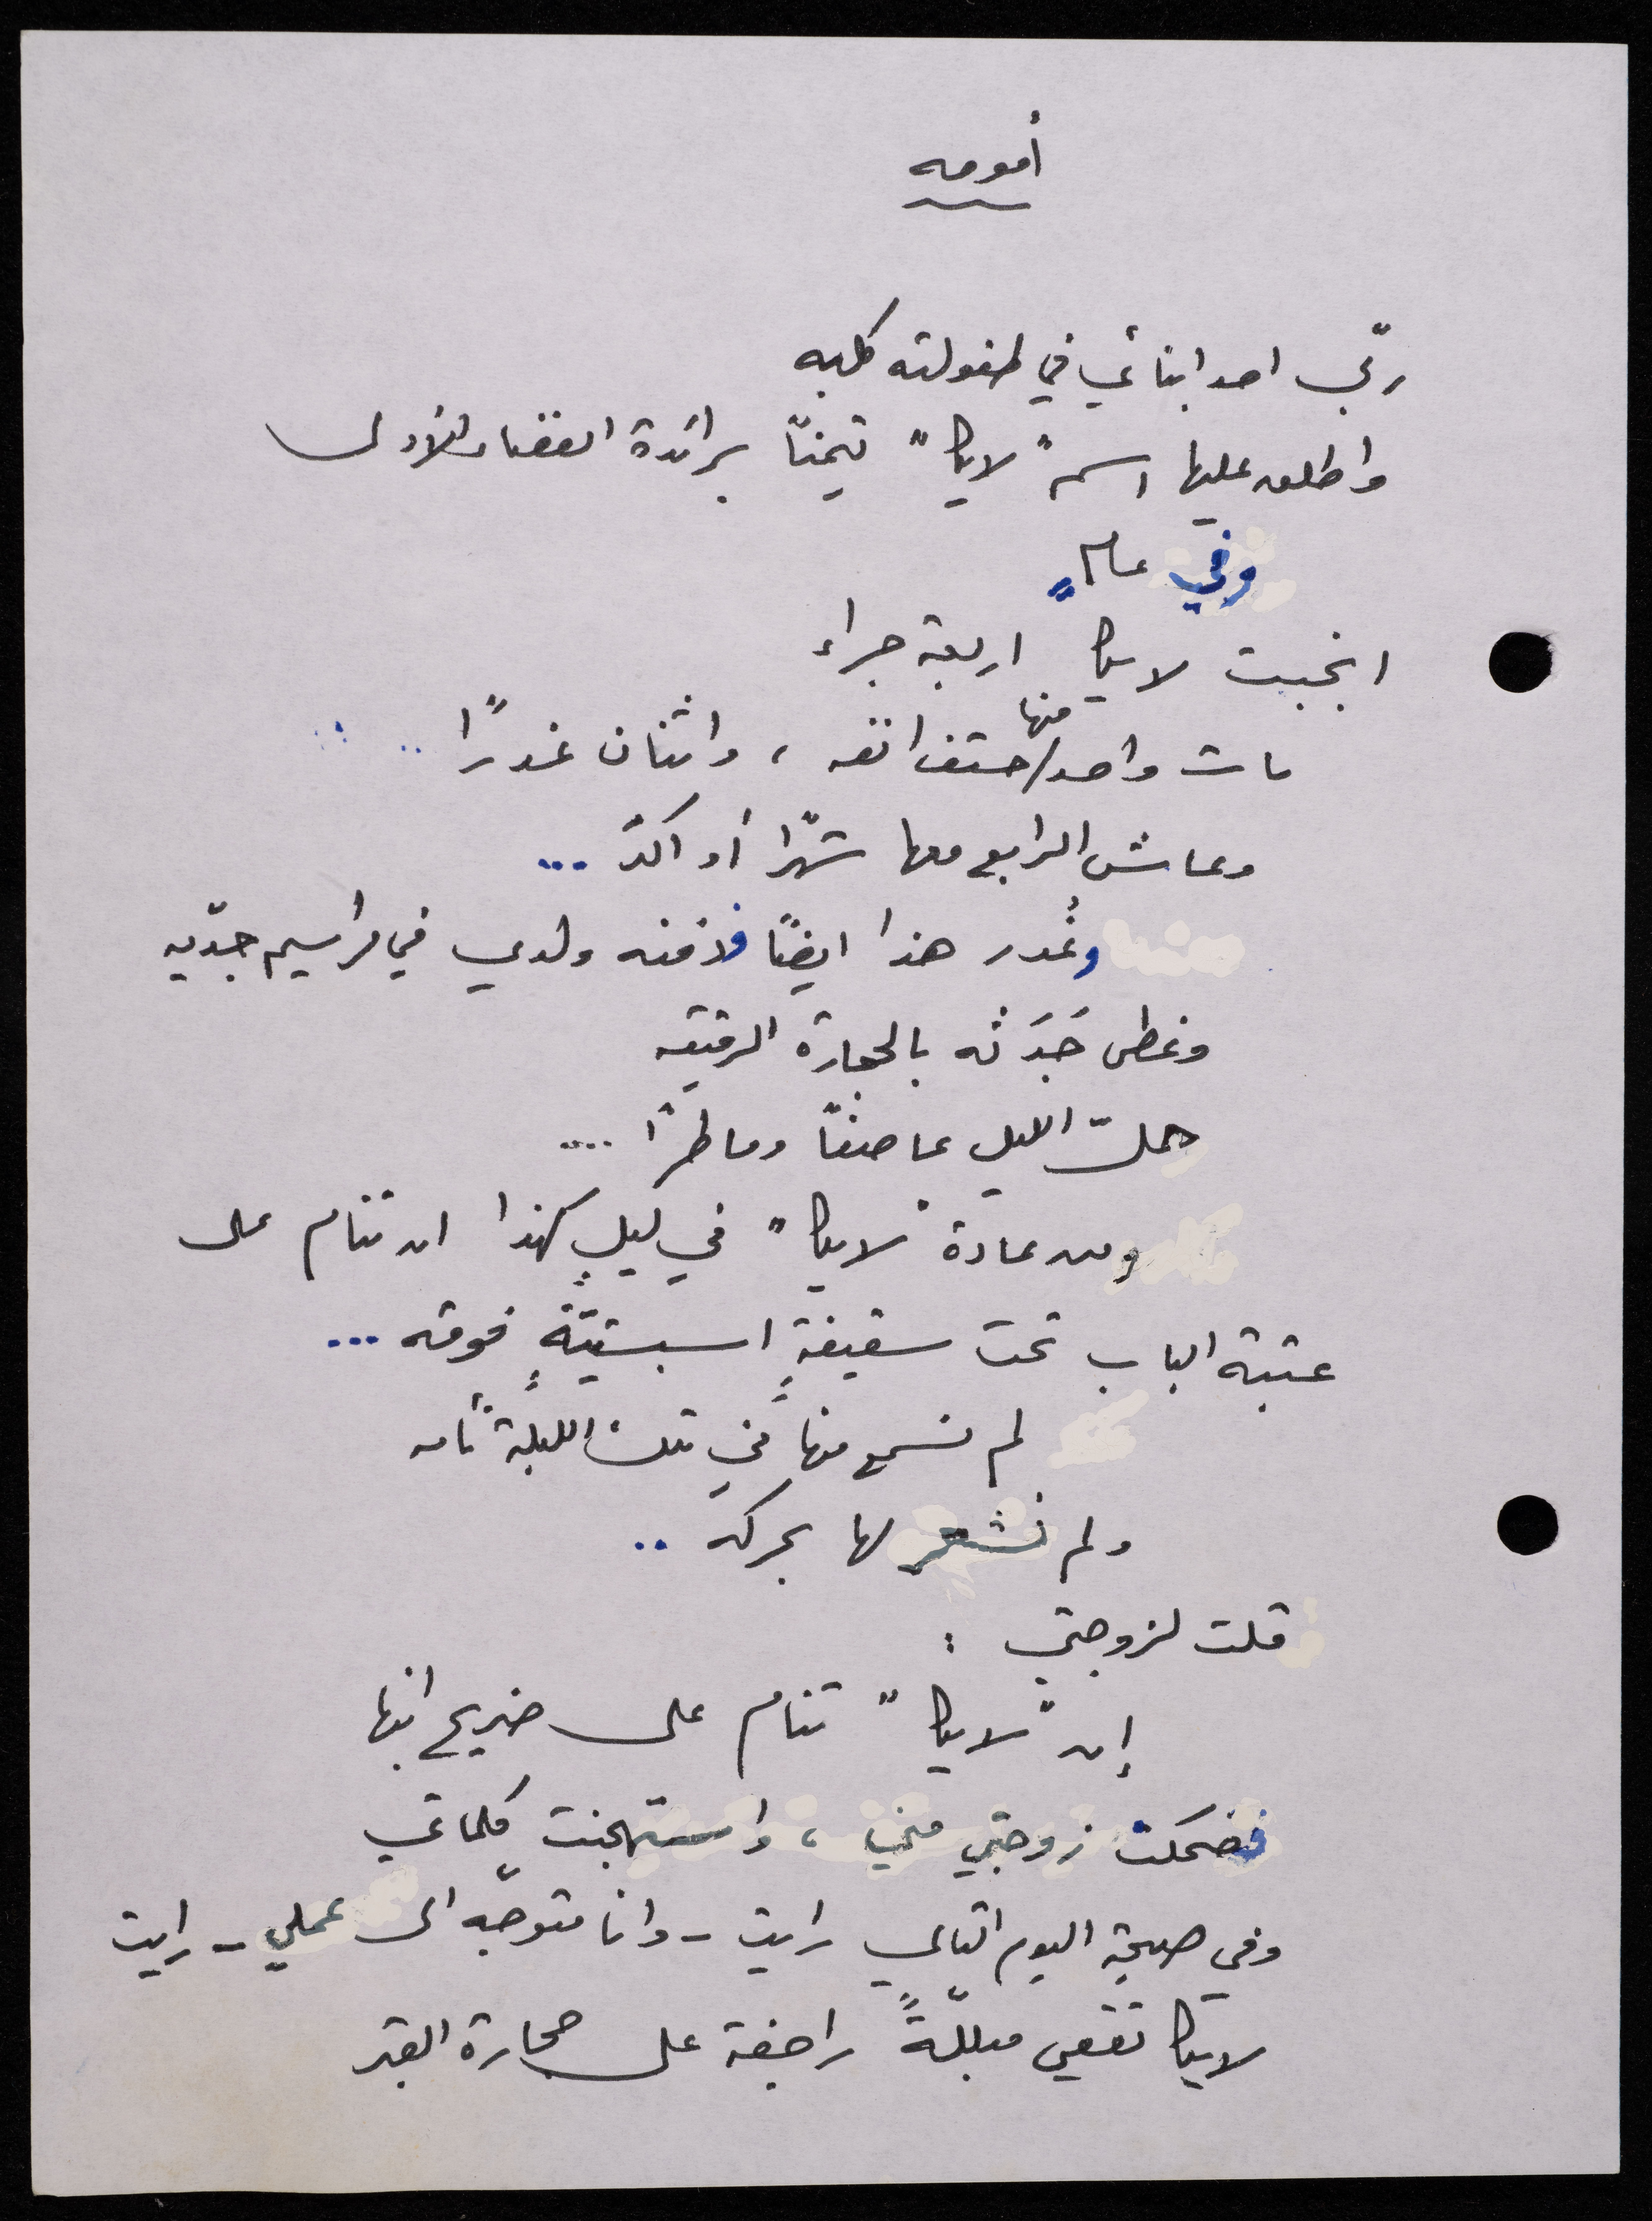 أمومه
ربّى احد ابنائي في طفولته كلبه
واطلق عليها اسم "لايكا" تيمّنًا برائدة الفضاء الأولى
وفي عامٍ
انجبت لايكا اربعة جراء
مات واحد منها حتف انفه ، واثنان غدرًا ..
وعاش الرابع معها شهرًا أو اكثر ...
وغُدر هذا ايضًا فدفنه ولدي في مراسيم جدّيه
وغطى جَدَثه بالحجارة الرقيقه
حلّ الليل عاصفًا وماطرًا ....
ومن عادة "لايكا" في ليلٍ كهذا ان تنام على
عتبة الباب تحت سقيفةٍ اسبستيّةٍ فوقه ...
لم نسمع منها في تلك الليلة نأمه
ولم نشعر لها بحركه ..
قلت لزوجتي :
إن "لايكا" تنام على ضريح ابنها
فضحكت زوجتي مني ، واستهجنت كلماتي
وفي صبيحة اليوم التالي رايت - وانا متوجّه الى عملي - رايت
لايكا تقعي مبللّةً راجفة على حجارة القبر